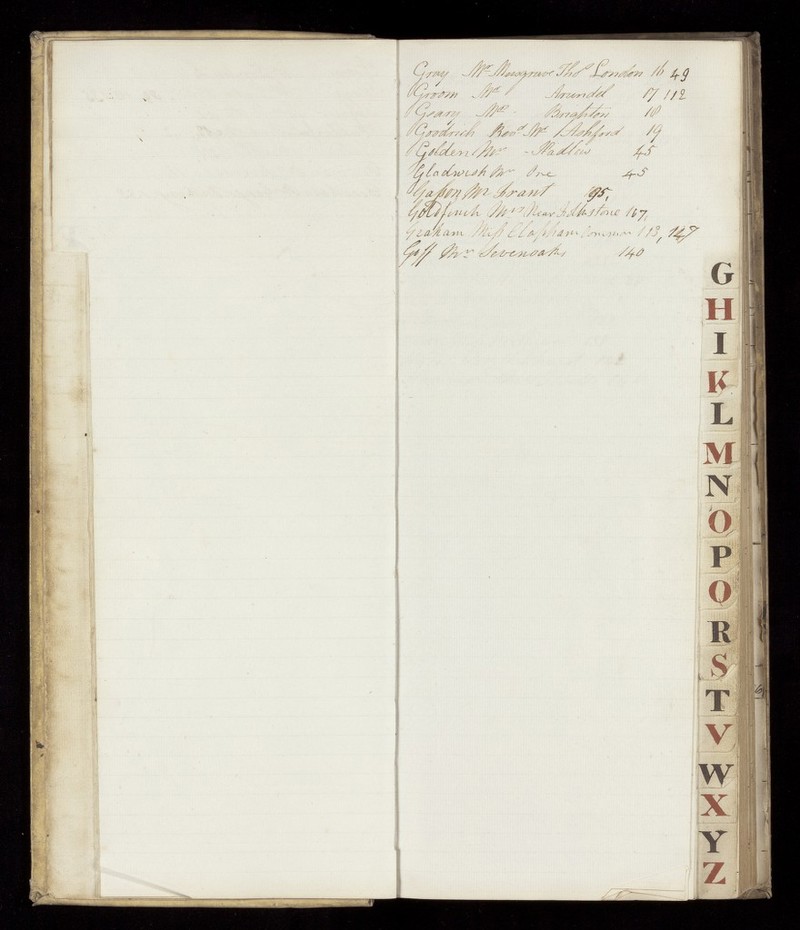 Gray Mr Musgrave Thos London 16 49
Groom Mr Arundel 17 112
Geary Mr Brighton 18
Goodrich Revd Mr Ashford 19
Golden Mr 45
Gladwish Mr Ore 45
Mr Frant 95,
Goldfinch Mrs Near Folkstone 107,
Graham Miss Clapham Common 113, 127
Goff Mr Sevenoaks 140
G
H
I
K
L
M
N
O
P
Q
R
S
T
V
W
X
Y
Z